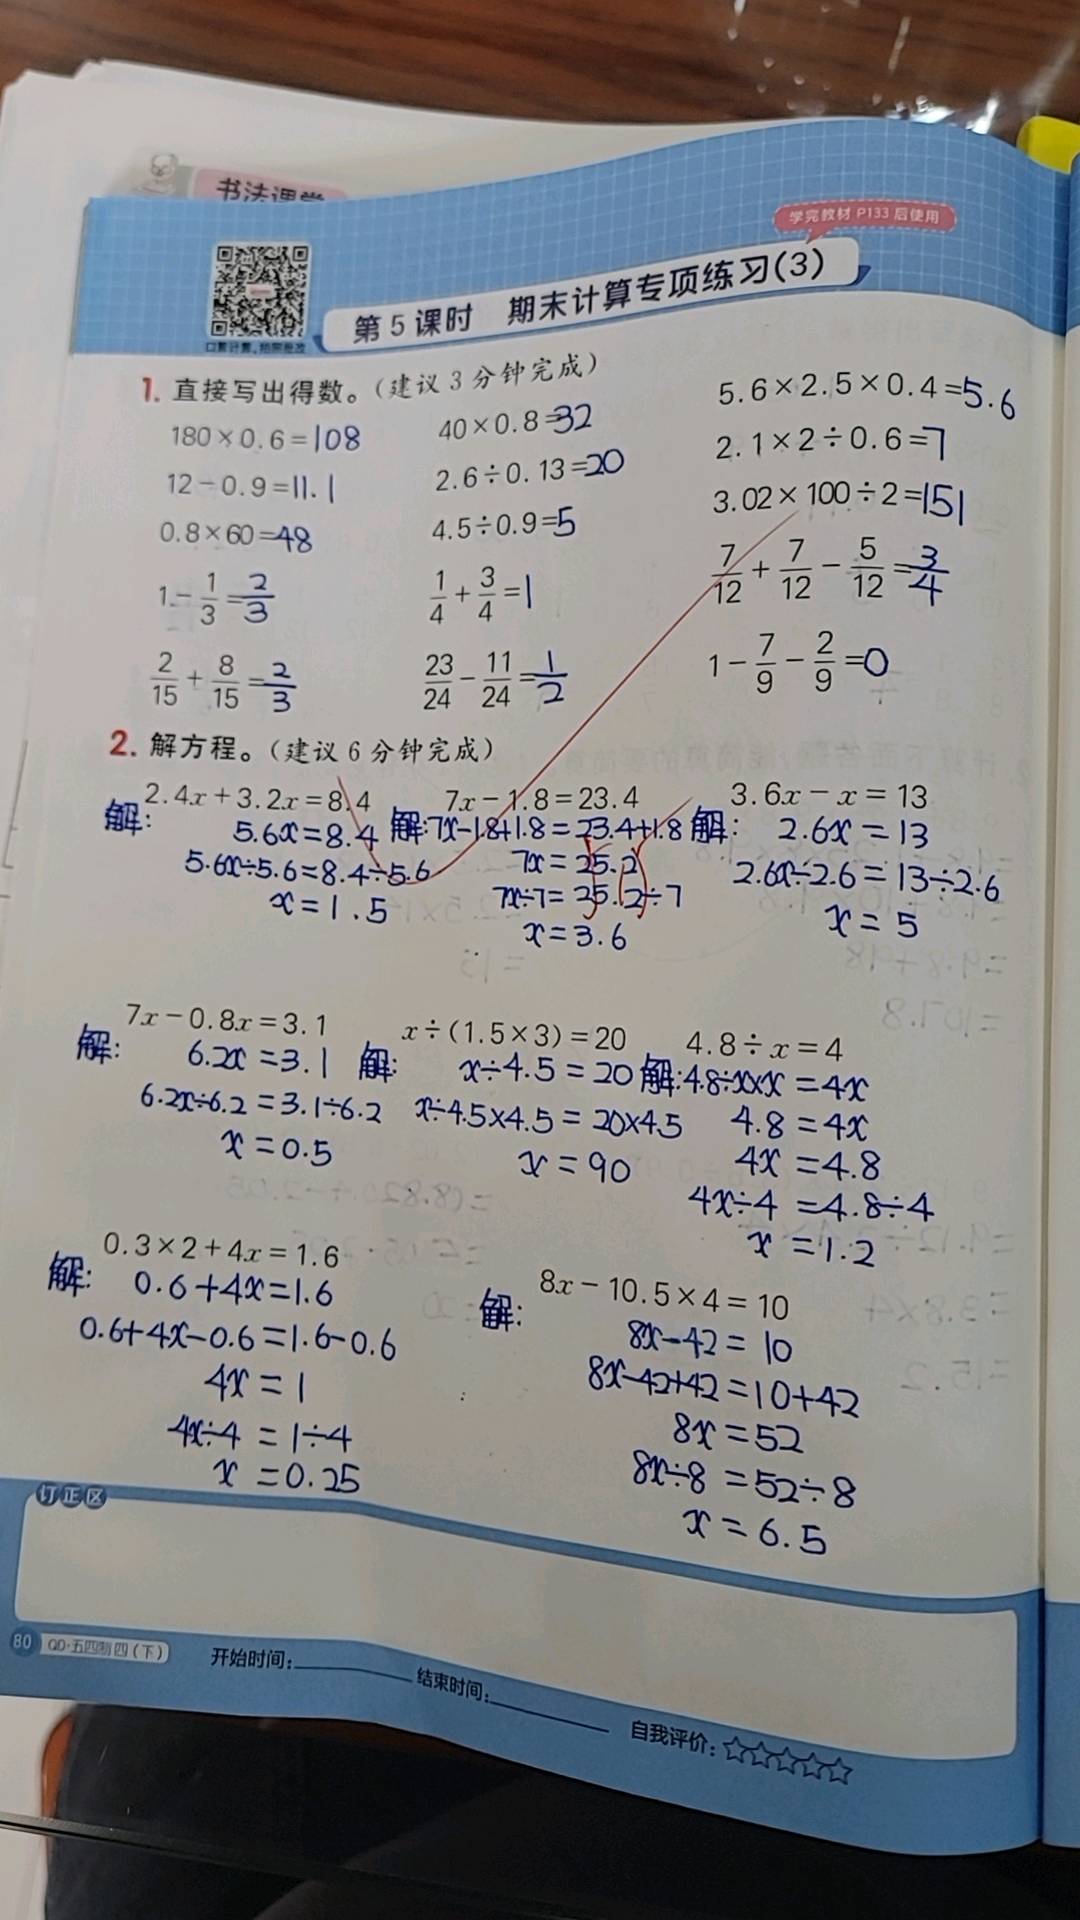 书法课堂
学完教材 P133 后使用
口算计算，拍照批改
第 5 课时 期末计算专项练习(3)
1. 直接写出得数。(建议 3 分钟完成)
180×0.6=108 40×0.8=32 5.6×2.5×0.4=5.6
12-0.9=11.1 2.6÷0.13=20 2.1×2÷0.6=7
0.8×60=48 4.5÷0.9=5 3.02×100÷2=151
1-1/3=2/3 1/4+3/4=1 7/12+7/12-5/12=3/4
2/15+8/15=2/3 23/24-11/24=1/2 1-7/9-2/9=0
2. 解方程。(建议 6 分钟完成)
2.4x+3.2x=8.4
解: 5.6x=8.4
5.6x÷5.6=8.4÷5.6
x=1.5
7x-1.8=23.4
解:7x-1.8+1.8=23.4+1.8
7x=25.2
7x÷7=25.2÷7
x=3.6
3.6x-x=13
解: 2.6x=13
2.6x÷2.6=13÷2.6
x=5
7x-0.8x=3.1
解: 6.2x=3.1
6.2x÷6.2=3.1÷6.2
x=0.5
x÷(1.5×3)=20
解: x÷4.5=20
x÷4.5×4.5=20×4.5
x=90
4.8÷x=4
解:4.8÷x×x=4x
4.8=4x
4x=4.8
4x÷4=4.8÷4
x=1.2
0.3×2+4x=1.6
解: 0.6+4x=1.6
0.6+4x-0.6=1.6-0.6
4x=1
4x÷4=1÷4
x=0.25
8x-10.5×4=10
解: 8x-42=10
8x-42+42=10+42
8x=52
8x÷8=52÷8
x=6.5
订正区
80 QD·五四制 四(下) 开始时间: 结束时间: 自我评价:☆☆☆☆☆